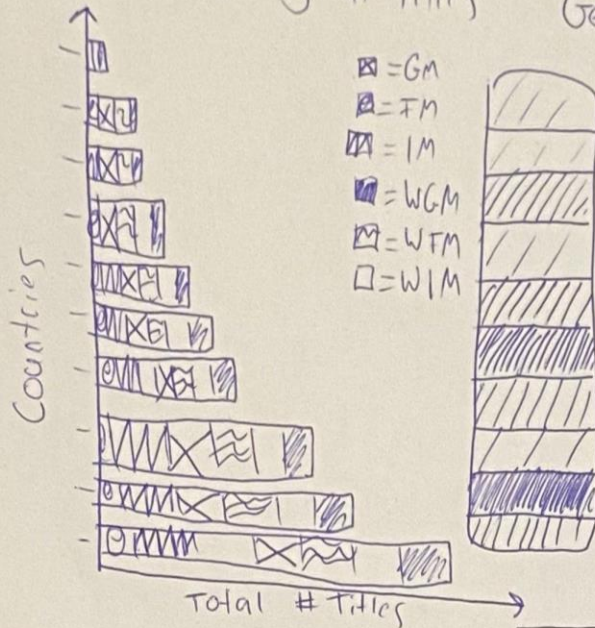 = GM
= FM
= IM
= WGM
= WFM
= WIM
Countries
Total # Titles